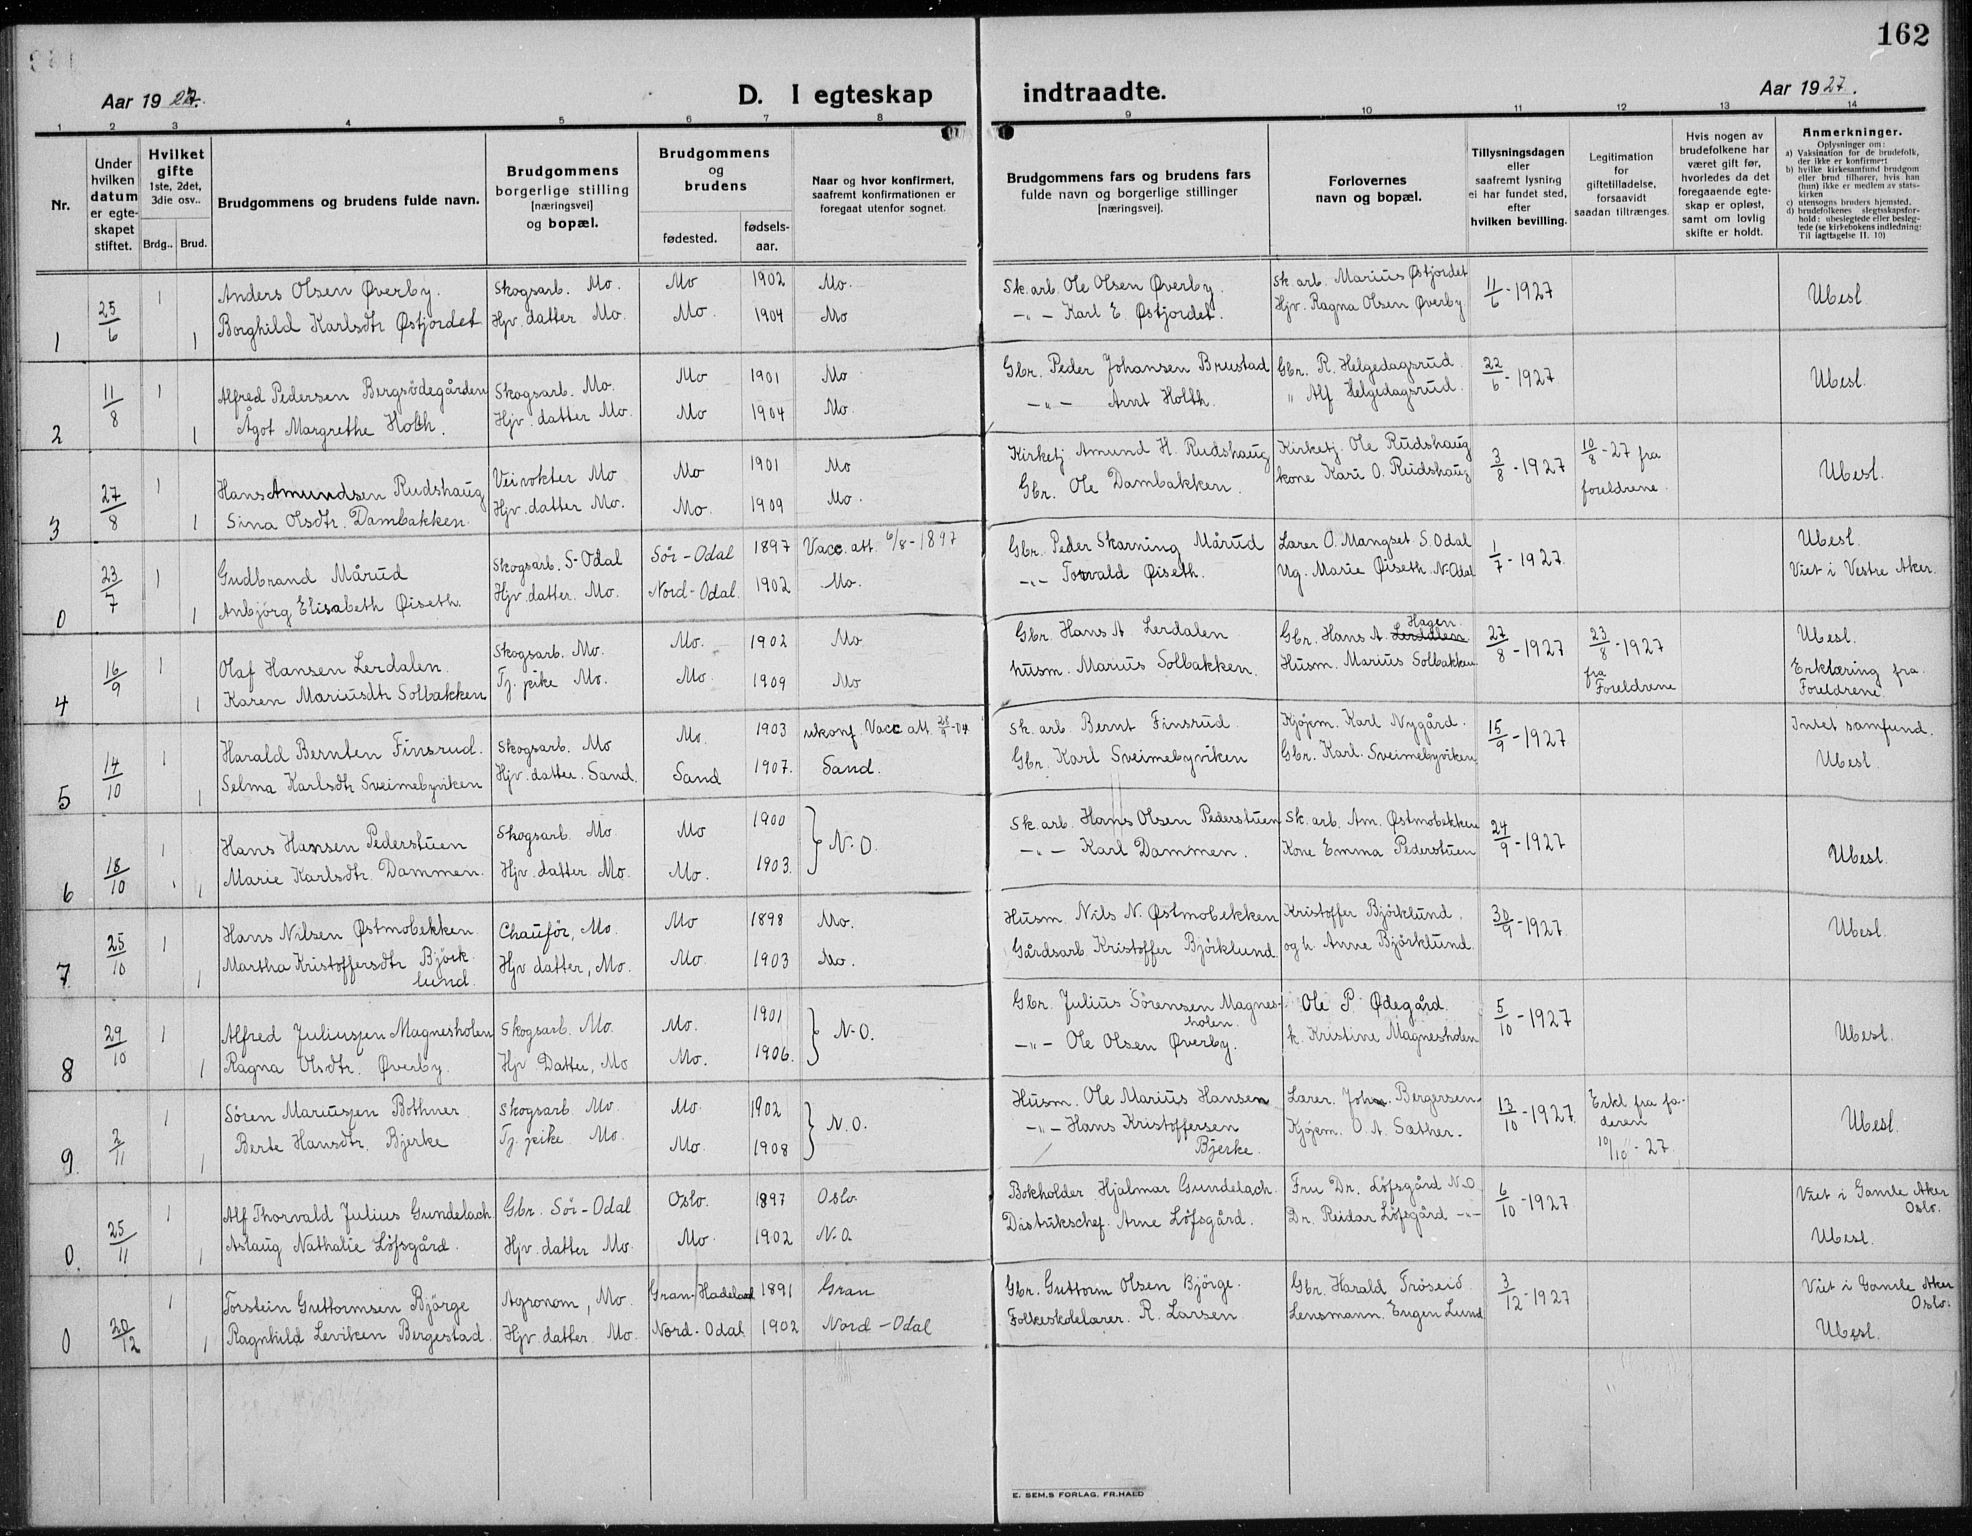 162
Aar 1927.
D. I egteskap
indtraadte.
Aar 1927.
1 2 3 4 5 6 7 8 9 10 11 12 13 14
Nr.
Under hvilken datum er egteskapet stiftet.
Hvilket gifte
1ste, 2det, 3die osv..
Brdg.. Brud.
Brudgommens og brudens fulde navn.
Brudgommens borgerlige stilling [næringsvei] og bopæl.
Brudgommens og brudens
fødested.
fødsels-aar.
Naar og hvor konfirmert, saafremt konfirmationen er foregaat utenfor sognet.
Brudgommens fars og brudens fars fulde navn og borgerlige stillinger [næringsvei].
Forlovernes navn og bopæl.
Tillysningsdagen eller saafremt lysning ei har fundet sted, efter hvilken bevilling.
Legitimation for giftetilladelse, forsaavidt saadan tiltrænges.
Hvis nogen av brudefolkene har været gift før, hvorledes da det foregaaende egteskap er opløst, samt om lovlig skifte er holdt.
Anmerkninger.
Oplysninger om:
a) Vaksination for de brudefolk, der ikke er konfirmert
b) hvilke kirkesamfund brudgom eller brud tilhører, hvis han (hun) ikke er medlem av statskirken
c) utensogns bruders hjemsted.
d) brudefolkenes slegtsskapsforhold: ubeslegtede eller beslegtede (se kirkebokens indledning: Til iagttagelse II. 10)
1 25/6 1 Anders Olsen Øverby. Skogsarb. Mo. Mo 1902 Mo. Sk. arb. Ole Olsen Øverby. Sk. arb. Marius Østjordet 11/6 - 1927 Ubesl.
1 Borghild Karlsdtr Østjordet Hjv. datter Mo. Mo. 1904 Mo -"- Karl E. Østjordet. Hjv. Ragna Olsen Øverby
2 11/8 1 Alfred Pedersen Bergsödegården Skogsarb. Mo. Mo 1901 Mo Gbr. Peder Johansen Brustad Gbr. R. Helgedagsrud 22/6 - 1927 Ubesl.
1 Ågot Margrethe Holth. Hjv. datter Mo. Mo 1904 Mo. -"- Arnt Holth. " Alf Helgedagsrud.
3 27/8 1 Hans Amundsen Rudshaug Veivokter Mo Mo 1901 Mo Kirketj. Amund H. Rudshaug Kirketj. Ole Rudshaug 3/8 - 1927 10/8 - 27 fra foreldrene. Ubesl.
1 Sina Olsdtr. Dambakken. Hjv. datter Mo. Mo. 1909 Mo. Gbr. Ole Dambakken. kone Kari O. Rudshaug
0 23/7 1 Gudbrand Mårud Skogsarb. S-Odal Sör-Odal 1897 Vacc. att. 6/8-1897 Gbr. Peder Skarning Mårud Lærer O. Mangset S. Odal 1/7 - 1927. Ubesl.
1 Anbjörg Elisabeth Øiseth. Hjv. datter. Mo. Nord-Odal. 1902 Mo. -"- Torvald Øiseth. Ug. Marie Øiseth N-Odal Viet i Vestre Aker.
4 16/9 1 Olaf Hansen Lerdalen. Skogsarb. Mo. Mo. 1902 Mo Gbr. Hans A Lerdalen Gbr. Hans A. Hagen. 27/8 - 1927 23/8 - 1927 fra Foreldrene Ubesl.
1 Karen Mariusdtr Solbakken Tj. pike Mo. Mo. 1909 Mo husm. Marius Solbakken. Husm. Marius Solbakken Erklæring fra Foreldrene
5 14/10 1 Harald Bernten Finsrud. Skogsarb. Mo Mo. 1903 ukonf. Vacc att. Sk. arb Bernt Finsrud. Kjøjem. Karl Nygård. 15/9 - 1927 Intet samfund.
1 Selma Karlsdtr Sveimebyviken Hjv. datter. Sand. Sand 1907. Sand. Gbr. Karl Sveimebyviken Gbr. Karl. Sveimebyviken Ubesl.
6 18/10 1 Hans Hansen Pederstuen Skogsarb. Mo. Mo 1900 N.O. Sk. arb. Hans Olsen Pederstuen Sk. arb. Am. Østmobekken 24/9 - 1927 Ubesl.
1 Marie Karlsdtr. Dammen. Hjv. datter Mo. Mo. 1903. -"- Karl Dammen. Kone Emma Pederstuen
7 25/10 1 Hans Nilsen Østmobekken. Chauför, Mo. Mo 1898 Mo. Husm. Nils N. Østmobekken Kristoffer Björklund. 30/9 - 1927. Ubesl.
1 Martha Kristoffersdtr Björklund. Hjv datter, Mo. Mo. 1903 Mo. Gårdsarb Kristoffer Björklund. og h. Anne Björklund.
8 29/10 1 Alfred Juliussen Magnesholen Skogsarb. Mo. Mo. 1901 N-O. Gbr. Julius Sörensen Magnesholen. Ole P. Ødegård. 5/10 - 1927 Ubesl.
1 Ragna Olsdtr. Øverby. Hjv Datter, Mo Mo. 1906. -"- Ole Olsen Øverby. k. Kristine Magnesholen
9. 2/11 1 Sören Mariussen Bothner. Skogsarb. Mo. Mo. 1902 N.O. Husm. Ole Marius Hansen Lærer. Johan Bergersen. 13/10 - 1927. Erkl fra faderen 10/10 - 27. Ubesl.
1 Berte Hansdtr. Bjerke Tj. pike Mo. Mo. 1908 -"- Hans Kristoffersen Bjerke. Kjøjem. O. A. Sæther.
0. 25/11 1 Alf Thorvald Julius Gundelach. Gbr. Sör-Odal Oslo. 1897 Oslo. Bokholder Hjalmar Gundelach. Fru Dr. Löfsgård N.O 6/10 - 1927 Viet i Gamle Aker Oslo.
1 Aslaug Nathalie Löfsgård. Hjv. datter Mo. Mo. 1902 N.O. Distriktschef. Arne Löfsgård. Dr. Reidar Löfsgård -"- Ubesl.
0 20/12 1 Torstein Guttormsen Björge Agronom, Mo. Gran-Hadeland 1891 Gran Gbr. Guttorm Olsen Björge. Gbr. Harald Tröseid 3/12 - 1927 Viet i Gamle Aker Oslo.
1 Ragnhild Leviken Bergestad. Hjv. datter Mo. Nord-Odal 1902 Nord-Odal Folkeskolelærer. R. Larsen. Lensmann. Eugen Lund Ubesl.
E. SEM.S FORLAG, FR.HALD